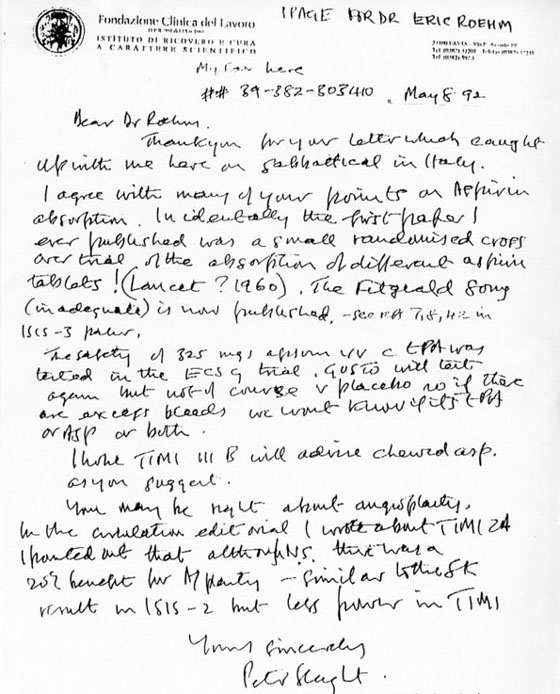 1 PAGE FOR DR ERIC ROEHM
Fondazione Clinica del Lavoro
ISTITUTO DI RICOVERO E CURA
A CARATTERE SCIENTIFICO
My Fax here
## 39-382-303410 . May 8 92
Dear Dr Roehm.
Thankyou for your letter which caught
up with me here on sabbattical in Italy.
I agree with many of your points on Aspirin
absorption. Incidentally the first paper I
ever published was a small randomised cross
over trial of the absorption of different aspirin
tablets! (Lancet ? 1960). The Fitzgerald
(inadequate) is now published. - see ref 7, 8, 42 in
ISIS-3 paper.
The safety of 325 mgs aspirin c tPA was
tested in the ECSG trial. GUSTO will test
again but not of course v placebo so if there
are excess bleeds we wont know if its tPA
or ASP or both.
I hope TIMI III B will advise chewed asp.
as you suggest.
You may be right about angioplasty.
In the circulation editorial I wrote about TIMI 2A
I pointed out that although NS. there was a
20% benefit for A/plasty - similar to the SK
result in ISIS-2 but less power in TIMI
Yours sincerely
Peter Sleight.